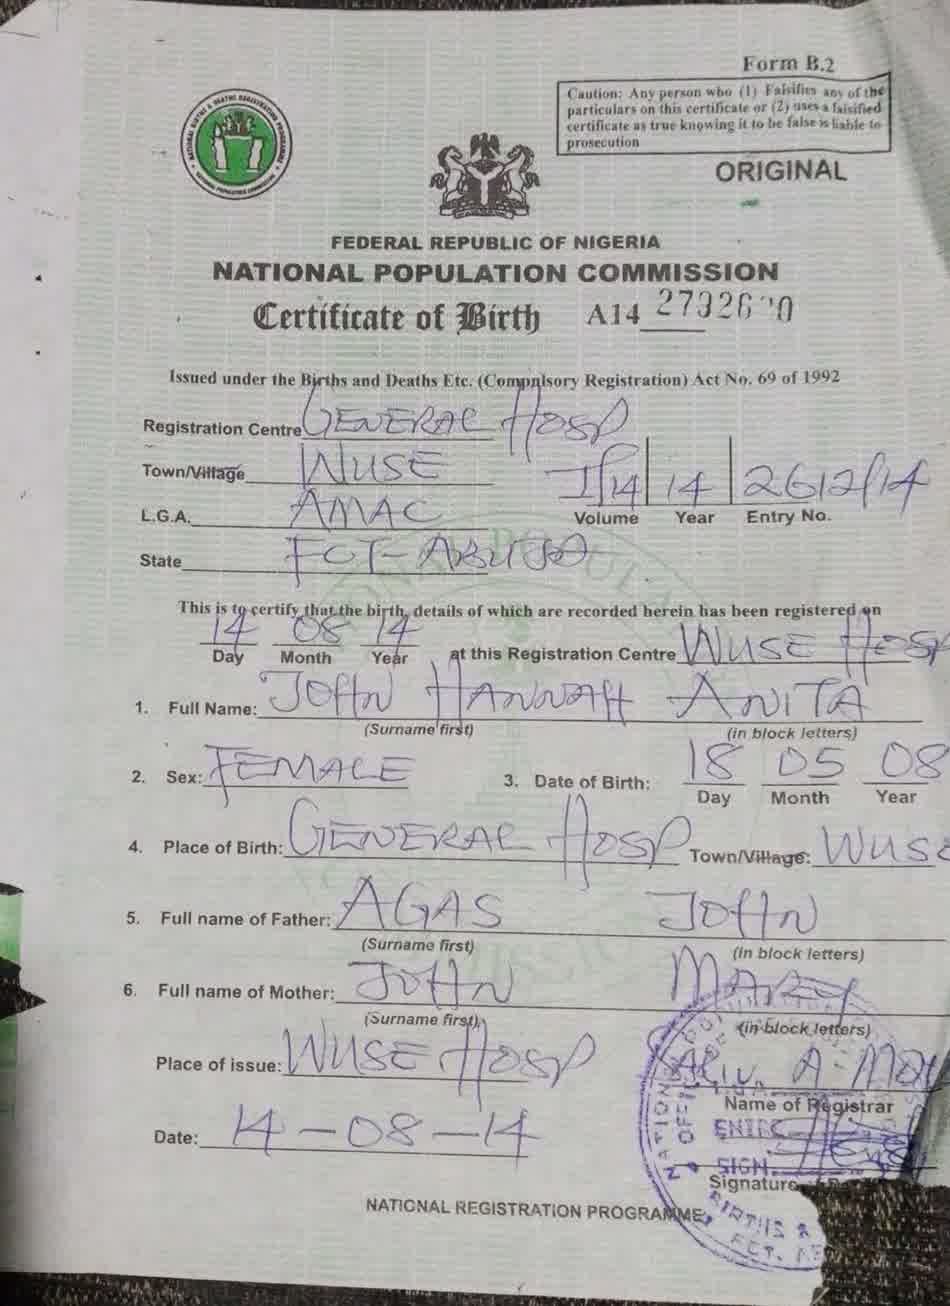 Form B.2
Caution: Any person who (1) Falsifies any of the
particulars on this certificate or (2) uses a falsified
certificate as true knowing it to be false is liable to
prosecution
ORIGINAL
NATIONAL POPULATION COMMISSION
FEDERAL REPUBLIC OF NIGERIA
NATIONAL POPULATION COMMISSION
Certificate of Birth A14
Issued under the Births and Deaths Etc. (Compulsory Registration) Act No. 69 of 1992
Registration Centre GENERAL HOSP
Town/Village WUSE I/14 14 2612/14
L.G.A. AMAC Volume Year Entry No.
State FCT-ABUJA
This is to certify that the birth, details of which are recorded herein has been registered on
14 08 14 at this Registration Centre WUSE HOSP
Day Month Year
1. Full Name: JOHN HANNAH ANITA
(Surname first) (in block letters)
2. Sex: FEMALE 3. Date of Birth: 18 05 08
Day Month Year
4. Place of Birth: GENERAL HOSP Town/Village: WUSE
5. Full name of Father: AGAS JOHN
(Surname first) (in block letters)
6. Full name of Mother: JOHN MARY
(Surname first) (in block letters)
Place of issue: WUSE HOSP
Name of Registrar
Date: 14-08-14
SIGN.
Signature
NATIONAL REGISTRATION PROGRAMME
BIRTHS &
FCT.